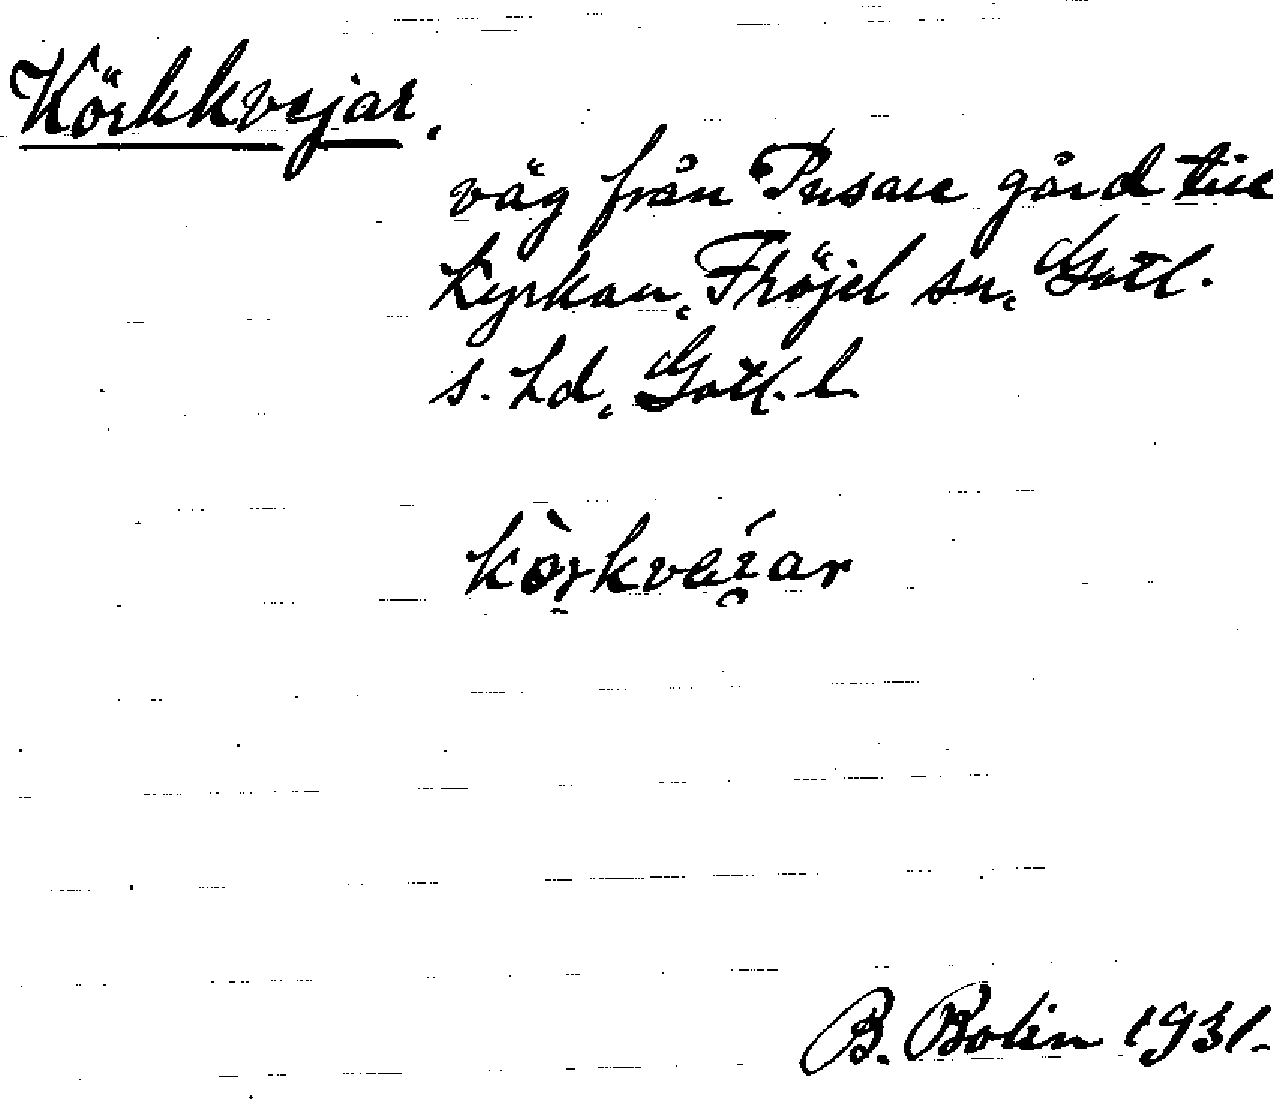 Körkkvejar.
väg från Pusarve gård till
Kyrkan, Fröjel sn, Gotl.
s. hd, Gotl. l.
B. Bolin 1931.